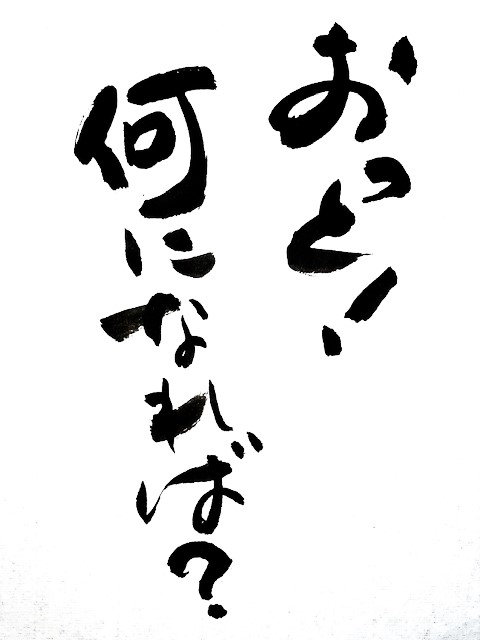 おっと!
何になれば?